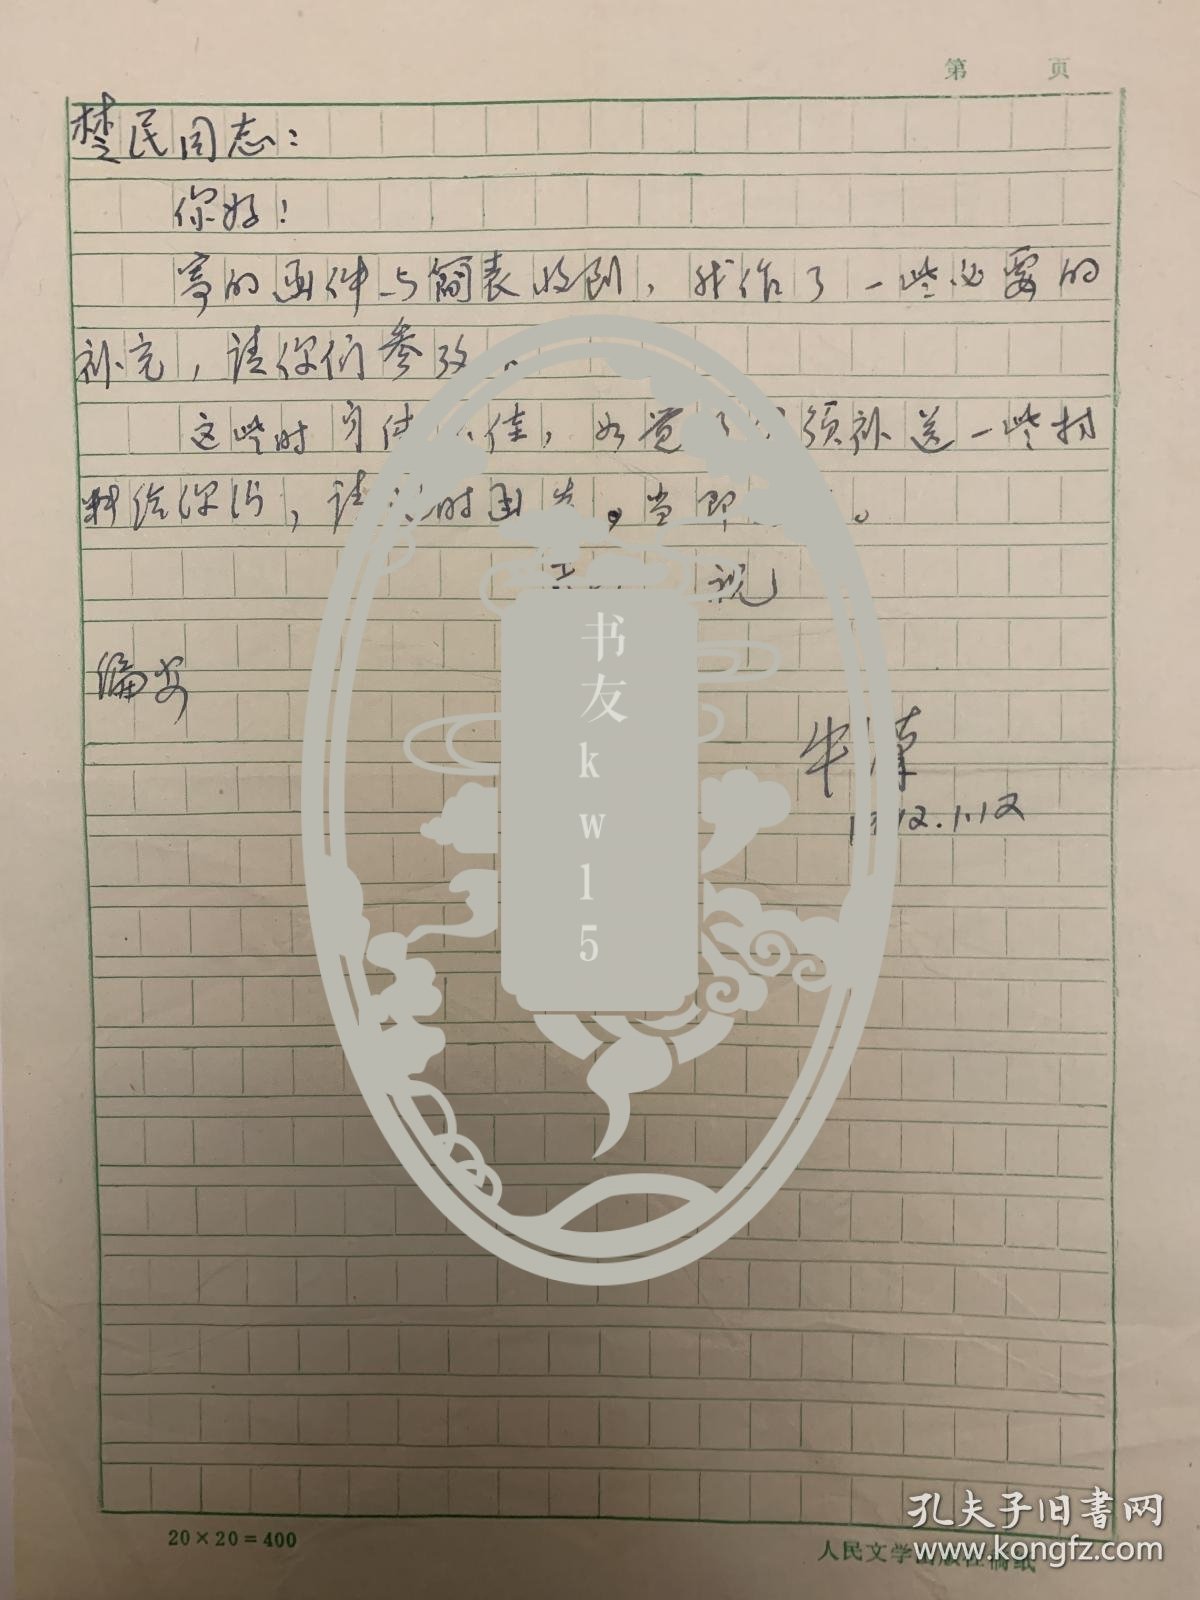 第 页
楚民同志：
你好！
寄的函件与简表收到，我作了一些必要的
补充，请你们参改。
这些时身体佳，如觉须补送一些材
料给你们，请时函告。当即。
祝
编安
牛漢
12.1.12
书友kwl5
20×20=400
人民文学出版社稿纸
孔夫子旧书网
www.kongfz.com